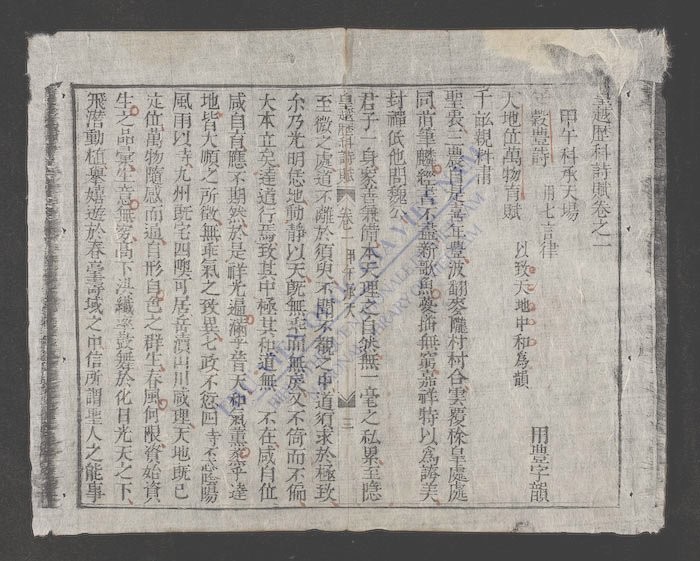 皇越歷科詩賦卷之一
甲午科承天場
穀豐詩 用七言律 用豐字韻
天地位萬物育賦 以致天地中和為韻
千畝親耕甫
聖衷三農自是
年豐波翻麥隴村村合雲覆稌皇處處
同甫筆麟經書不盡新歌魚夢
無窮嘉祥特以為
美
封禪
他
魏公
君子一身
本天理之自然無一毫之私累至隱
至微之處道不離於須臾不聞不覩之中道須求於極致
尒乃光明
地動靜以天既無
而無戾又不倚而不偏
大本立矣達道行焉致其中極其和道無 不在咸自位
咸自育應不期然於是祥光遍
乎普天和氣薰
乎達
地皆大順之所徵無乖氣之致異七政不愆四時不
陰陽
風雨以時九州既宅四隩可居
川咸理天地既已
定位萬物隨感而通自形自色之群生春風何限資始資
生之品彙生意無窮高下洪纖
鼓舞於化日光天之下
飛潛動植
嬉遊於春臺壽域之中信所謂聖人之能事
皇越歷科詩賦 卷一 甲午承天 三
BIBLIOTHÈQUE NATIONALE DU VIETNAM
NATIONAL LIBRARY OF VIETNAM